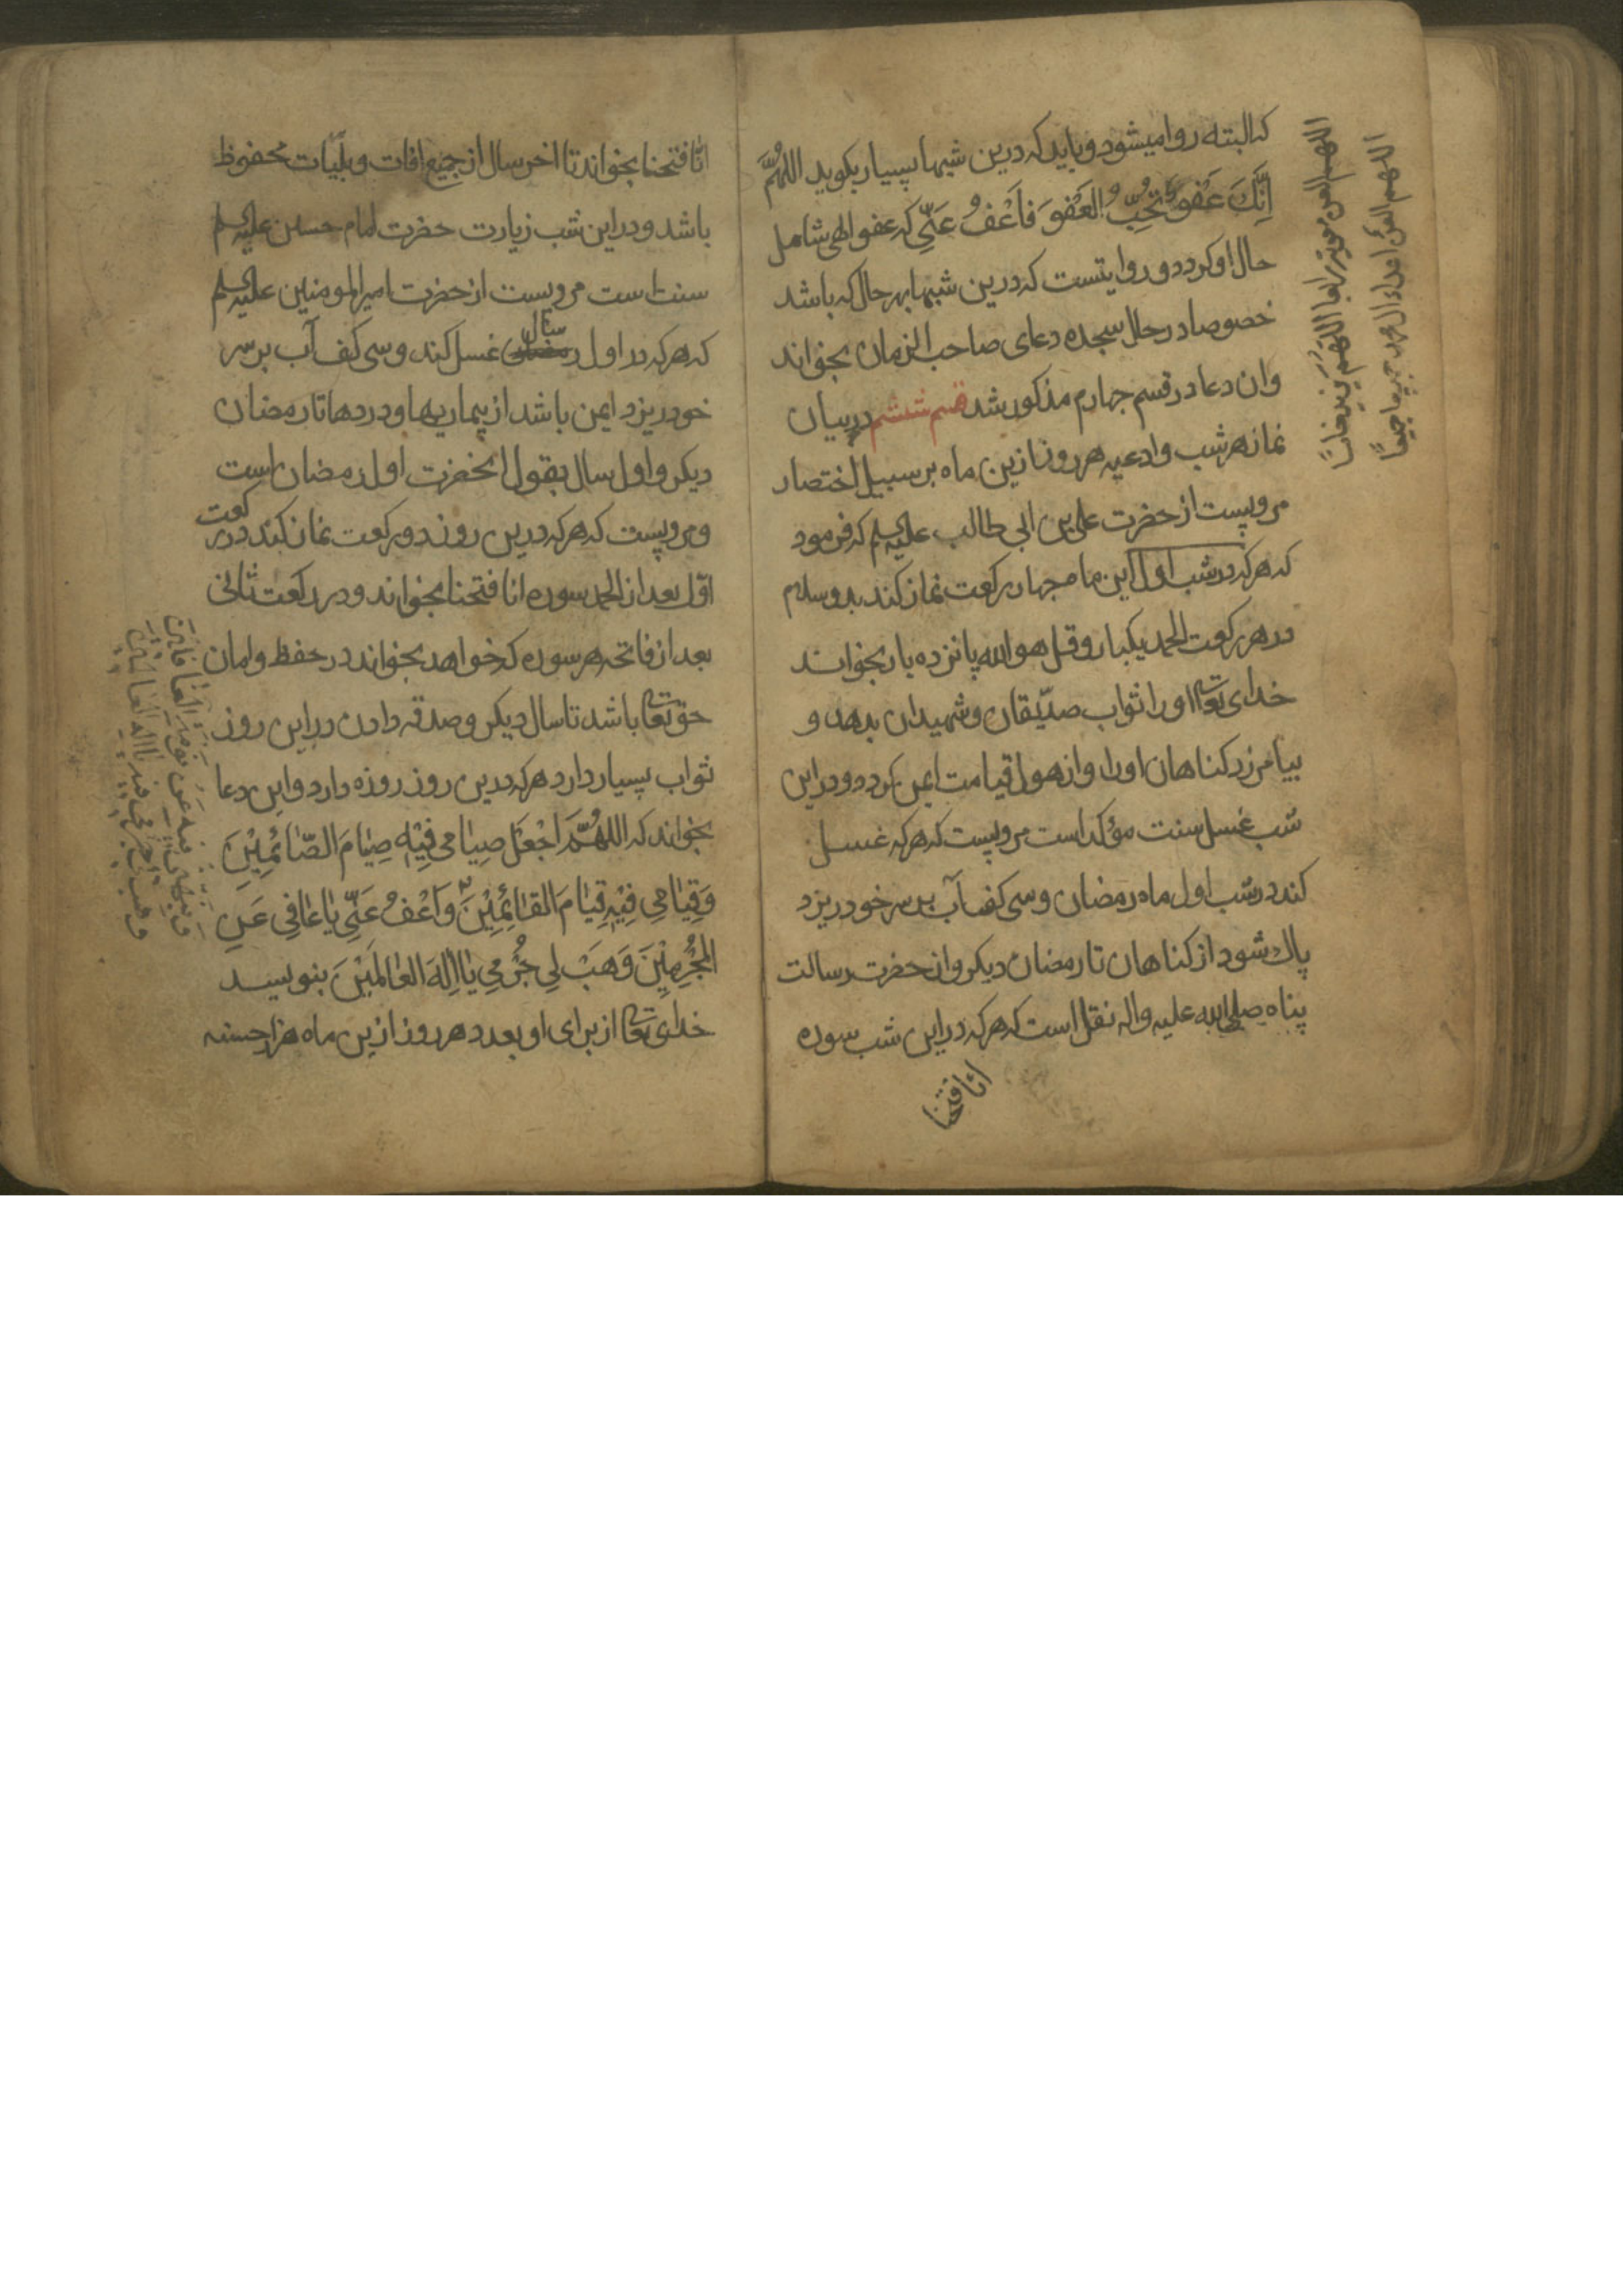 که البته روا میشود و باید که درین شبها بسیار بکوید اللهُمَّ
اِنَّكَ عَفُوٌّ تُحِبُّ العَفْوَ فَاعْفُ عَنِّي که عفو الهی شامل
حال او کردد و روایتست که درین شبها بهر حال که باشد
خصوصا در حال سجده دعای صاحب الزمان بخواند
وان دعا در قسم چهارم مذکور شد قسم ششم در بیان
نماز هر شب و ادعیه هر روز ازین ماه بر سبیل اختصار
مرویست از حضرت علی بن ابی طالب علیه السلم که فرمود
که هر که در شب اول این ماه چهار رکعت نماز کند بدو سلام
در هر رکعت الحمد یکبار و قل هو الله پانزده بار بخواند
خدای تعالی او را ثواب صدّیقان و شهیدان بدهد و
بیامرزد کناهان او را و از هول قیامت ایمن کردد و در این
شب غسل سنت مؤکد است مرویست که هر که غسل
کند در شب اول ماه رمضان و سی کف آب بر سر خود ریزد
پاك شود از کناهان تا رمضان دیکر و از حضرت رسالت
پناه صلی الله علیه واله نقل است که هر که در این شب سوره
انا فتحنا
اللهم العن
اللهم العن اعداء ال محمد جمیعا
انّا فتحنا بخواند تا اخر سال از جمیع افات و بلیّات محفوظ
باشد و در این شب زیارت حضرت امام حسین علیه السلم
سنت است مرویست از حضرت امیر المومنین علیه السلم
که هر که در اول سال غسل کند و سی کف آب بر سر
خود ریزد ایمن باشد از بیماریها و دردها تا رمضان
دیکر و اول سال بقول انحضرت اول رمضان است
و مرویست که هر که درین روز دو رکعت نماز کند در رکعت
اوّل بعد از الحمد سوره انا فتحنا بخواند و در رکعت ثانی
بعد از فاتحه هر سوره که خواهد بخواند در حفظ و امان
حق تعالی باشد تا سال دیکر و صدقه دادن در این روز
ثواب بسیار دارد هر که درین روز روزه دارد و این دعا
بخواند که اللهُمَّ اجْعَلْ صِیَامی فِیْهِ صِیَامَ الصَّائِمِیْنَ
وَقِیَامِی فِیْهِ قِیَامَ القَائِمِیْنَ وَاَعْفُ عَنِّي یَا عَافِي عَنِ
المُجْرِمِیْنَ وَهَبْ لِي جُرْمِي یَا اِلٰهَ العَالَمَیْنَ بنویسد
خدای تعالی از برای او بعدد هر روز ازین ماه هزار حسنه